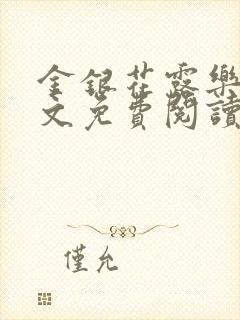 金銀花露樂
文免費閱讀
僅允